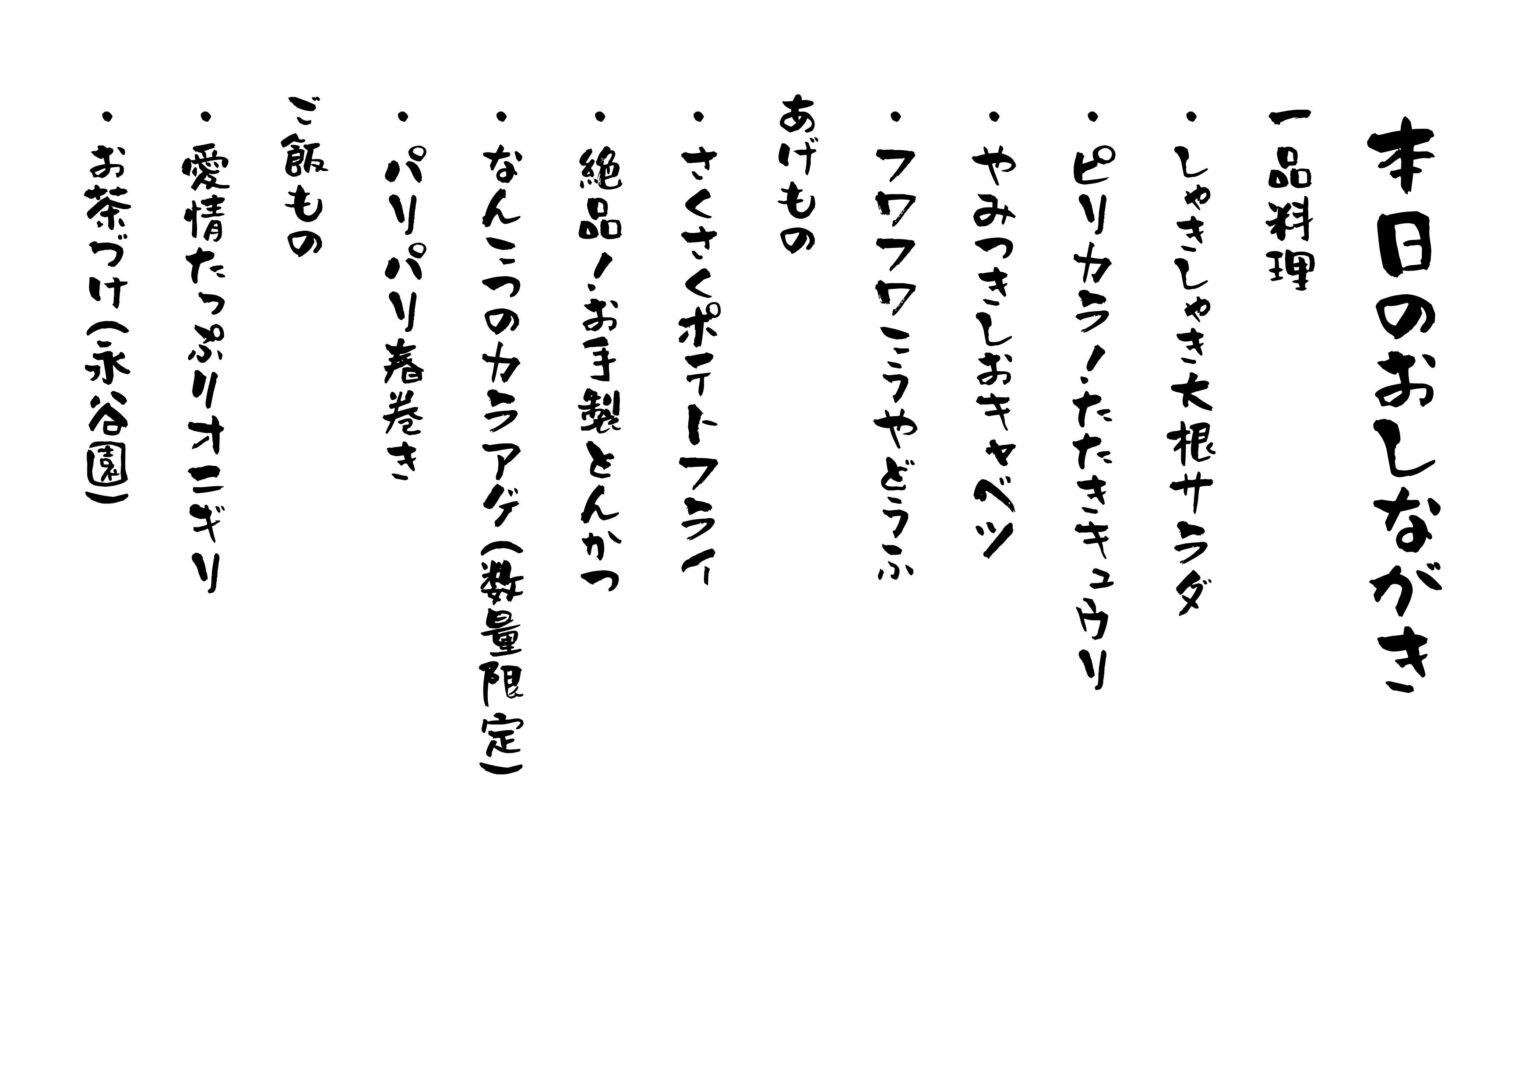 本日のおしながき
一品料理
・しゃきしゃき大根サラダ
・ピリカラ！たたきキュウリ
・やみつきしおキャベツ
・フワフワこうやどうふ
あげもの
・さくさくポテトフライ
・絶品！お手製とんかつ
・なんこつのカラアゲ(数量限定)
・パリパリ春巻き
ご飯もの
・愛情たっぷりオニギリ
・お茶づけ(永谷園)